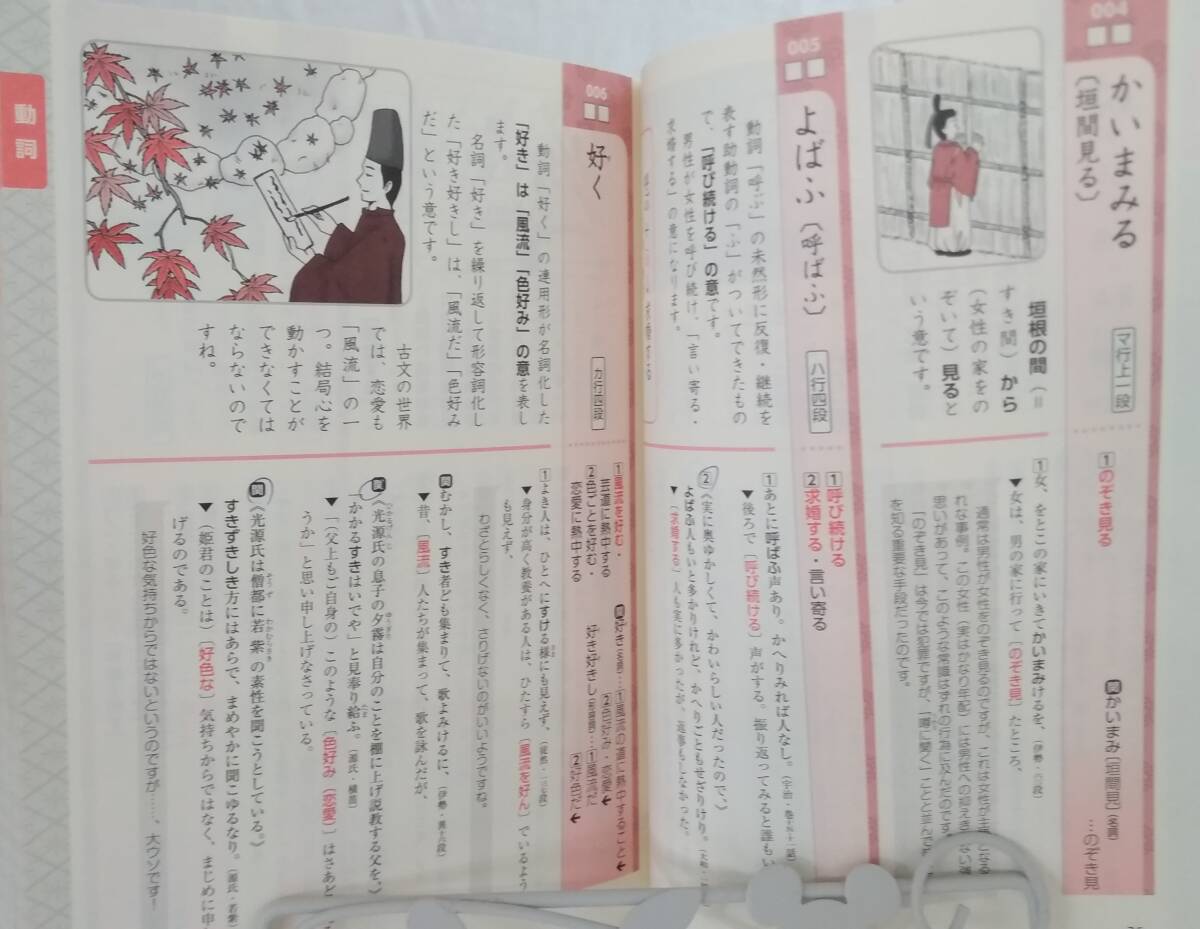 004
かいまみる
〔垣間見る〕
マ行上一段
垣根の間(=
すき間)から
(女性の家をの
ぞいて)見ると
いう意です。
1のぞき見る
関かいまみ〔垣間見〕(名詞)
…のぞき見
1女、をとこの家にいきてかいまみけるを、(伊勢・六三段)
▼女は、男の家に行って〔のぞき見〕たところ、
通常は男性が女性をのぞき見るのですが、これは女性が主
れな事例。この女性(実はかなり年配)には男性への抑えき
思いがあって、このような常識はずれの行為に及んだのです。
「のぞき見」は今では犯罪ですが、「噂に聞く」ことと並んで
を知る重要な手段だったのです。
005
よばふ〔呼ばふ〕
ハ行四段
動詞「呼ぶ」の未然形に反復・継続を
表す助動詞の「ふ」がついてできたもの
で、「呼び続ける」の意です。
男性が女性を呼び続け、「言い寄る・
求婚する」の意になります。
1呼び続ける
2求婚する・言い寄る
1あとに呼ばふ声あり。かへりみれば人なし。
▼後ろで〔呼び続ける〕声がする。振り返ってみると誰もい
2《実に奥ゆかしくて、かわいらしい人だったので、》
よばふ人もいと多かりけれど、かへりごともせざりけり。
▼〔求婚する〕人も実に多かったが、返事もしなかった。
006
好く
カ行四段
動詞「好く」の連用形が名詞化した
「好き」は「風流」「色好み」の意を表し
ます。
名詞「好き」を繰り返して形容詞化し
た「好き好きし」は、「風流だ」「色好み
だ」という意です。
古文の世界
では、恋愛も
「風流」の一
つ。結局心を
動かすことが
できなくては
ならないので
すね。
1風流を好む・
芸道に熱中する
2色ごとを好む・
恋愛に熱中する
関好き(名詞)…1風流の道に熱中すること
2色好み・恋愛
好き好きし(形容詞)…1風流だ
2好色だ
1よき人は、ひとへにすける様にも見えず、(徒然・一三七段)
▼身分が高く教養がある人は、ひたすら〔風流を好ん〕でいるよう
も見えず、
わざとらしくなく、さりげないのがいいようですね。
関むかし、すき者ども集まりて、歌よみけるに、
▼昔、〔風流〕人たちが集まって、歌を詠んだが、
関《光源氏の息子の夕霧は自分のことを棚に上げ説教する父を、》
「かかるすきはいでや」と見奉り給ふ。(源氏・横笛)
▼「(父上もご自身の)このような〔色好み(恋愛)〕はさあど
うか」と思い申し上げなさっている。
関《光源氏は僧都に若紫の素性を聞こうとしている。》
すきずきしき方にはあらで、まめやかに聞こゆるなり。(源氏・若紫)
▼(姫君のことは)〔好色な〕気持ちからではなく、まじめに申
げるのである。
好色な気持ちからではないというのですが……、大ウソです!
動詞